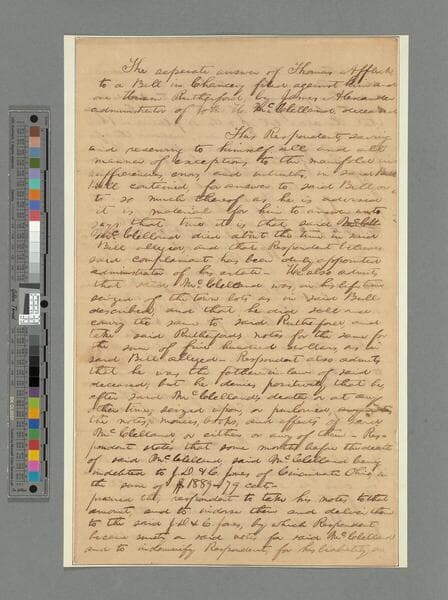 The seperate answer of Thomas Affleck
to a Bill in Chancery filed against him and
one Rutherford by James Alexander
administrator of McClelland, deceased
This Respondent, saving
and reserving to himself all and all
manner of exceptions to the manifold in
sufficiencies, errors, and in said Bill
contained, for answer to said Bill or
to so much thereof as he is advised
it is material for him to answer unto
says that true it is, that said
McClelland died about the time in said
Bill alleged, and that Respondent believes
said complainant has been duly appointed
administrator of his estate - He also admits
that said McClelland was in his life time
seized of the town lots as in said Bill
described, and that he did sell and
convey the same to said Rutherford and
take said Rutherfords notes for the same for
the sum of five hundred dollars as in
said Bill alleged - Respondent also admits
that he was the father in law of said
deceased, but he denies positively that he,
after said McClellands death, or at any
other time, seized upon, or purloined,
the notes, monies, books, and effects of said
McClelland, or either or any of them - Res-
pondent states that some months before the death
of said McClelland, said McClelland being
indebted to J.D. & C of Cincinnati Ohio in
the sum of $1889.79 cts -
procured this respondent to take his notes to that
amount, and to indorse them and deliver them
to the said J.D. & C by which Respondent
became on said notes for said McClelland
and to indemnify Respondent, for his liability, on